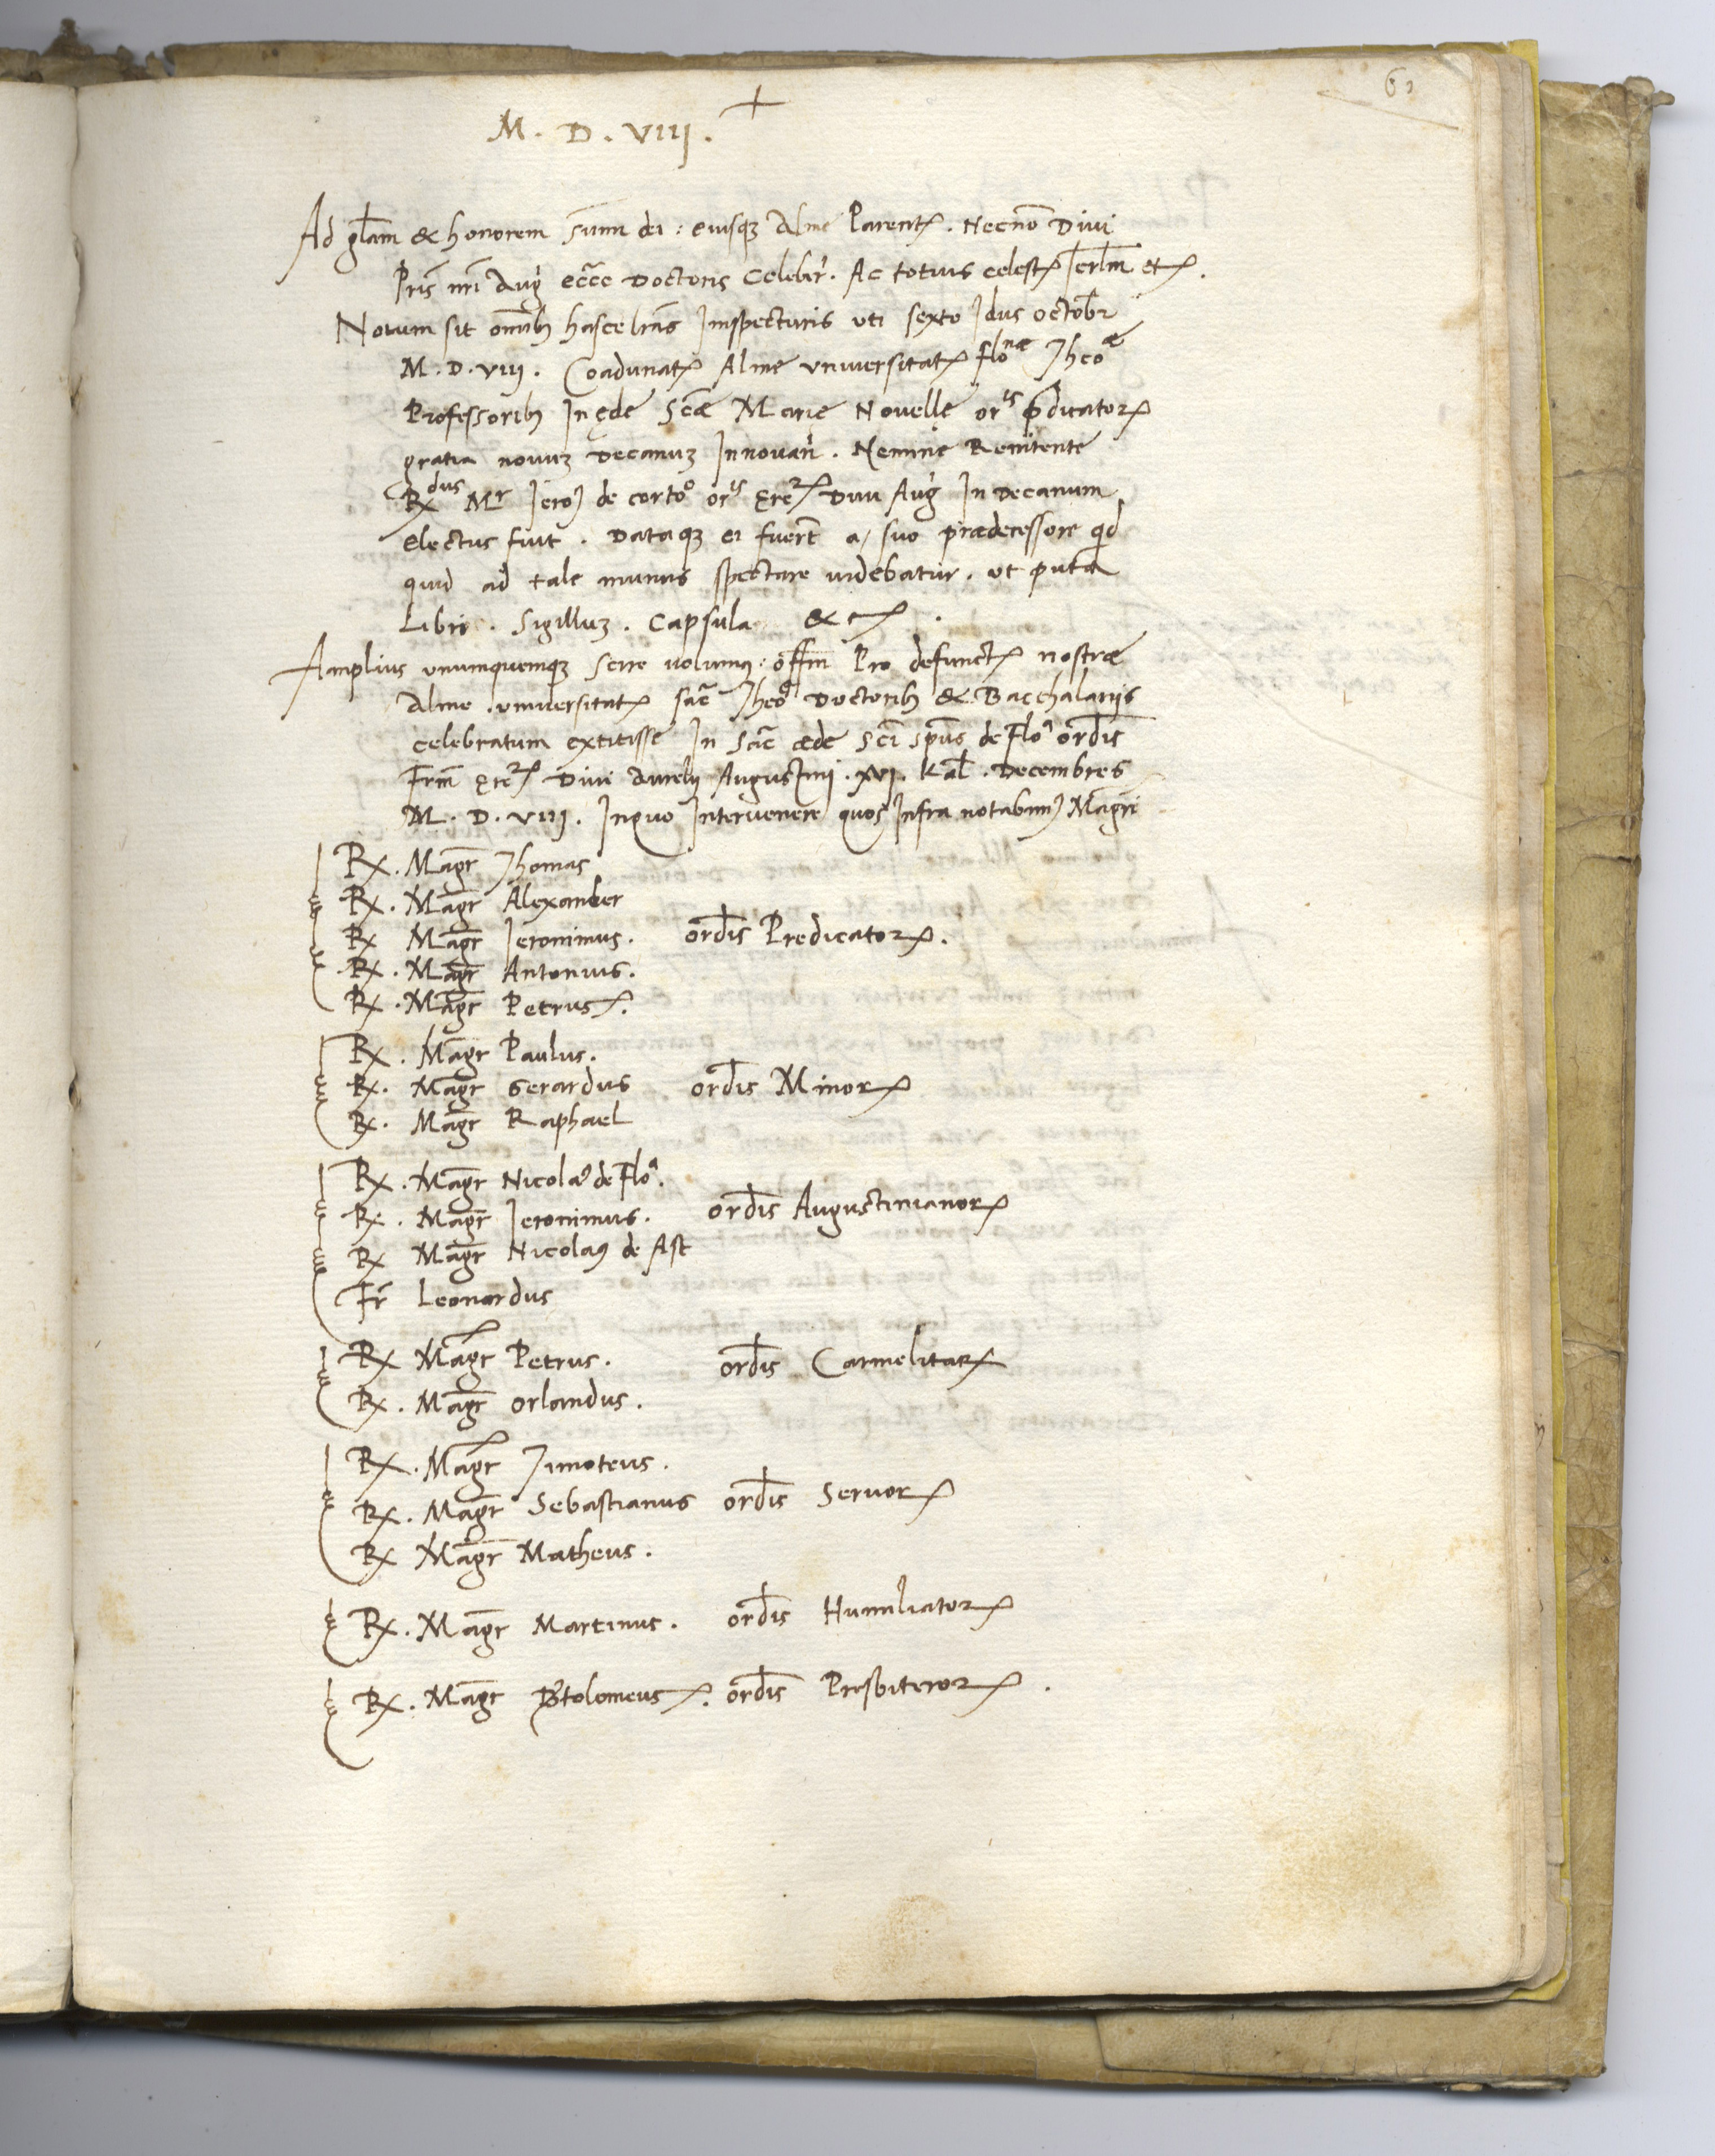 +
M. D. VIII.
Ad glam & honorem summi dei: eiusq; Alme Parent. Necno Divi
Pris nri Aug ecce Doctoris Celebr. Ac totius celest Jerlm etc.
Notum sit omib hasce lras Inspecturis uti sexto Idus octobr
M.D.VIII. Coadunat Alme Universitat flonae Theoae
Professorib In ede Scae Marie Novelle oris pdicator
gratia novu3 Decanu3 Innovan. Nemine Renitente
Rdus Mr Jero de corto oris ere Divi Aug In Decanum
electus fuit. Dataq3 ei fuert a suo praedecessore qd
quid ad tale munus spectare videbatur. ut puta
Libri. Sigillu3. Capsula &c.
Amplius unumquemq3 scire volum9: offm Pro defunct nostrae
Alme universitat sac Theo Doctorib & Bacchalariis
celebratum extitisse In Sac aede Sci spus de Flo ordis
Frm ere Divi Aurelij Augustini. XVI. Kal. Decembres
M. D. VIII. Inquo Intervenere quos Infra notabim9 Magri
R. Magr Thomas
R. Magr Alexander
R Magr Jeronimus. ordis Predicator.
R. Magr Antonius.
R. Magr Petrus.
R. Magr Paulus.
R. Magr Gerardus ordis Minor
R. Magr Raphael
R. Magr Nicola9 de Flo.
R. Magr Jeronimus. ordis Augustinianor
R Magr Nicola9 de Ast
Fr Leonardus
R Magr Petrus. ordis Carmelitar
R. Magr Orlandus.
R. Magr Timoteus.
R. Magr Sebastianus ordis Servor
R Magr Matheus.
R. Magr Martinus. ordis Humiliator
R. Magr Btolomeus. ordis Presbiteror.